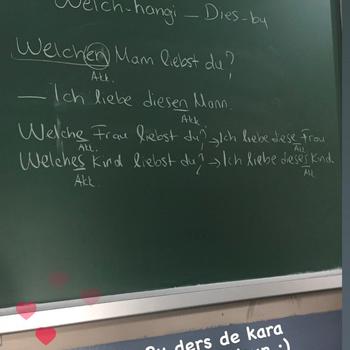 Welch-hangi — Dies-bu
Welchen Mann liebst du?
Akk.
— Ich liebe diesen Mann.
Akk.
Welche Frau liebst du? → Ich liebe diese Frau
Akk. Akk
Welches Kind liebst du? → Ich liebe dieses Kind.
Akk. Akk
Bu ders de kara
:)